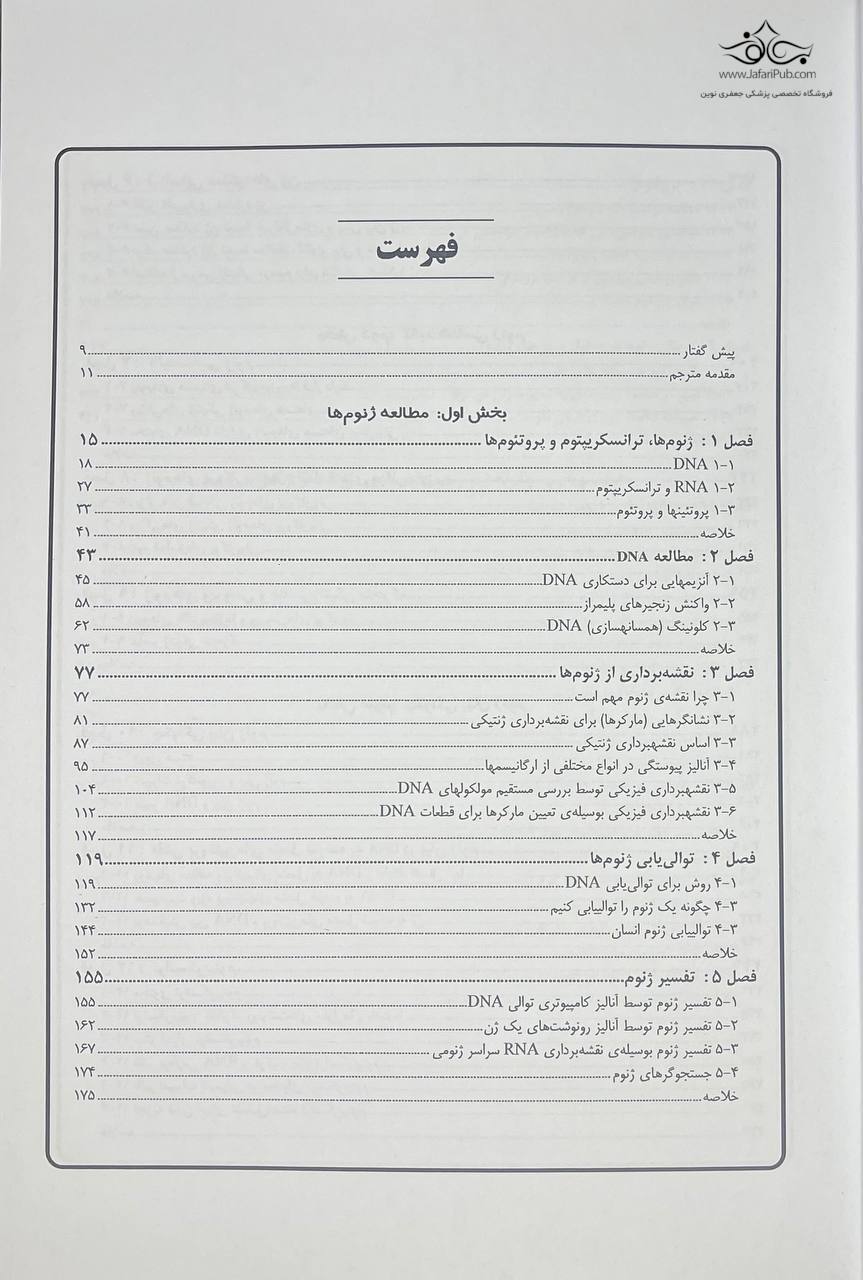 بناف
www.JafariPub.com
فروشگاه تخصصی پزشکی جعفری نوین
فهرست
پیش گفتار ۹
مقدمه مترجم ۱۱
بخش اول: مطالعه ژنوم‌ها
فصل ۱: ژنوم‌ها، ترانسکریپتوم و پروتئوم‌ها ۱۵
۱-۱ DNA ۱۸
۱-۲ RNA و ترانسکریپتوم ۲۷
۱-۳ پروتئینها و پروتئوم ۳۳
خلاصه ۴۱
فصل ۲: مطالعه DNA ۴۳
۲-۱ آنزیمهایی برای دستکاری DNA ۴۵
۲-۲ واکنش زنجیرهای پلیمراز ۵۸
۲-۳ کلونینگ (همسانهسازی) DNA ۶۲
خلاصه ۷۳
فصل ۳: نقشه‌برداری از ژنوم‌ها ۷۷
۳-۱ چرا نقشه‌ی ژنوم مهم است ۷۷
۳-۲ نشانگرهایی (مارکرها) برای نقشه‌برداری ژنتیکی ۸۱
۳-۳ اساس نقشهبرداری ژنتیکی ۸۷
۳-۴ آنالیز پیوستگی در انواع مختلفی از ارگانیسمها ۹۵
۳-۵ نقشهبرداری فیزیکی توسط بررسی مستقیم مولکولهای DNA ۱۰۴
۳-۶ نقشهبرداری فیزیکی بوسیله‌ی تعیین مارکرها برای قطعات DNA ۱۱۲
خلاصه ۱۱۷
فصل ۴: توالی‌یابی ژنوم‌ها ۱۱۹
۴-۱ روش برای توالی‌یابی DNA ۱۱۹
۴-۳ چگونه یک ژنوم را توالییابی کنیم ۱۳۲
۴-۳ توالییابی ژنوم انسان ۱۴۴
خلاصه ۱۵۲
فصل ۵: تفسیر ژنوم ۱۵۵
۵-۱ تفسیر ژنوم توسط آنالیز کامپیوتری توالی DNA ۱۵۵
۵-۲ تفسیر ژنوم توسط آنالیز رونوشت‌های یک ژن ۱۶۲
۵-۳ تفسیر ژنوم بوسیله‌ی نقشه‌برداری RNA سراسر ژنومی ۱۶۷
۵-۴ جستجوگرهای ژنوم ۱۷۴
خلاصه ۱۷۵